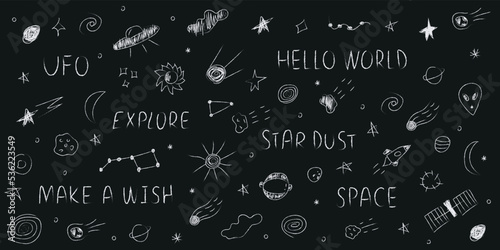 UFO
HELLO WORLD
EXPLORE
STAR DUST
MAKE A WISH
SPACE
536223549